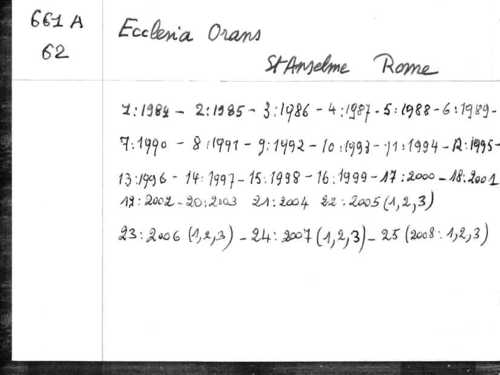 661 A
62
Ecclesia Orans
St Anselme Rome
1:1984 - 2:1985 - 3:1986 - 4:1987 - 5:1988 - 6:1989 -
7:1990 - 8:1991 - 9:1992 - 10:1993 - 11:1994 - 12:1995 -
13:1996 - 14:1997 - 15:1998 - 16:1999 - 17:2000 - 18:2001
19:2002 - 20:2003 21:2004 22:2005 (1,2,3)
23:2006 (1,2,3) - 24:2007 (1,2,3) - 25 (2008:1,2,3)